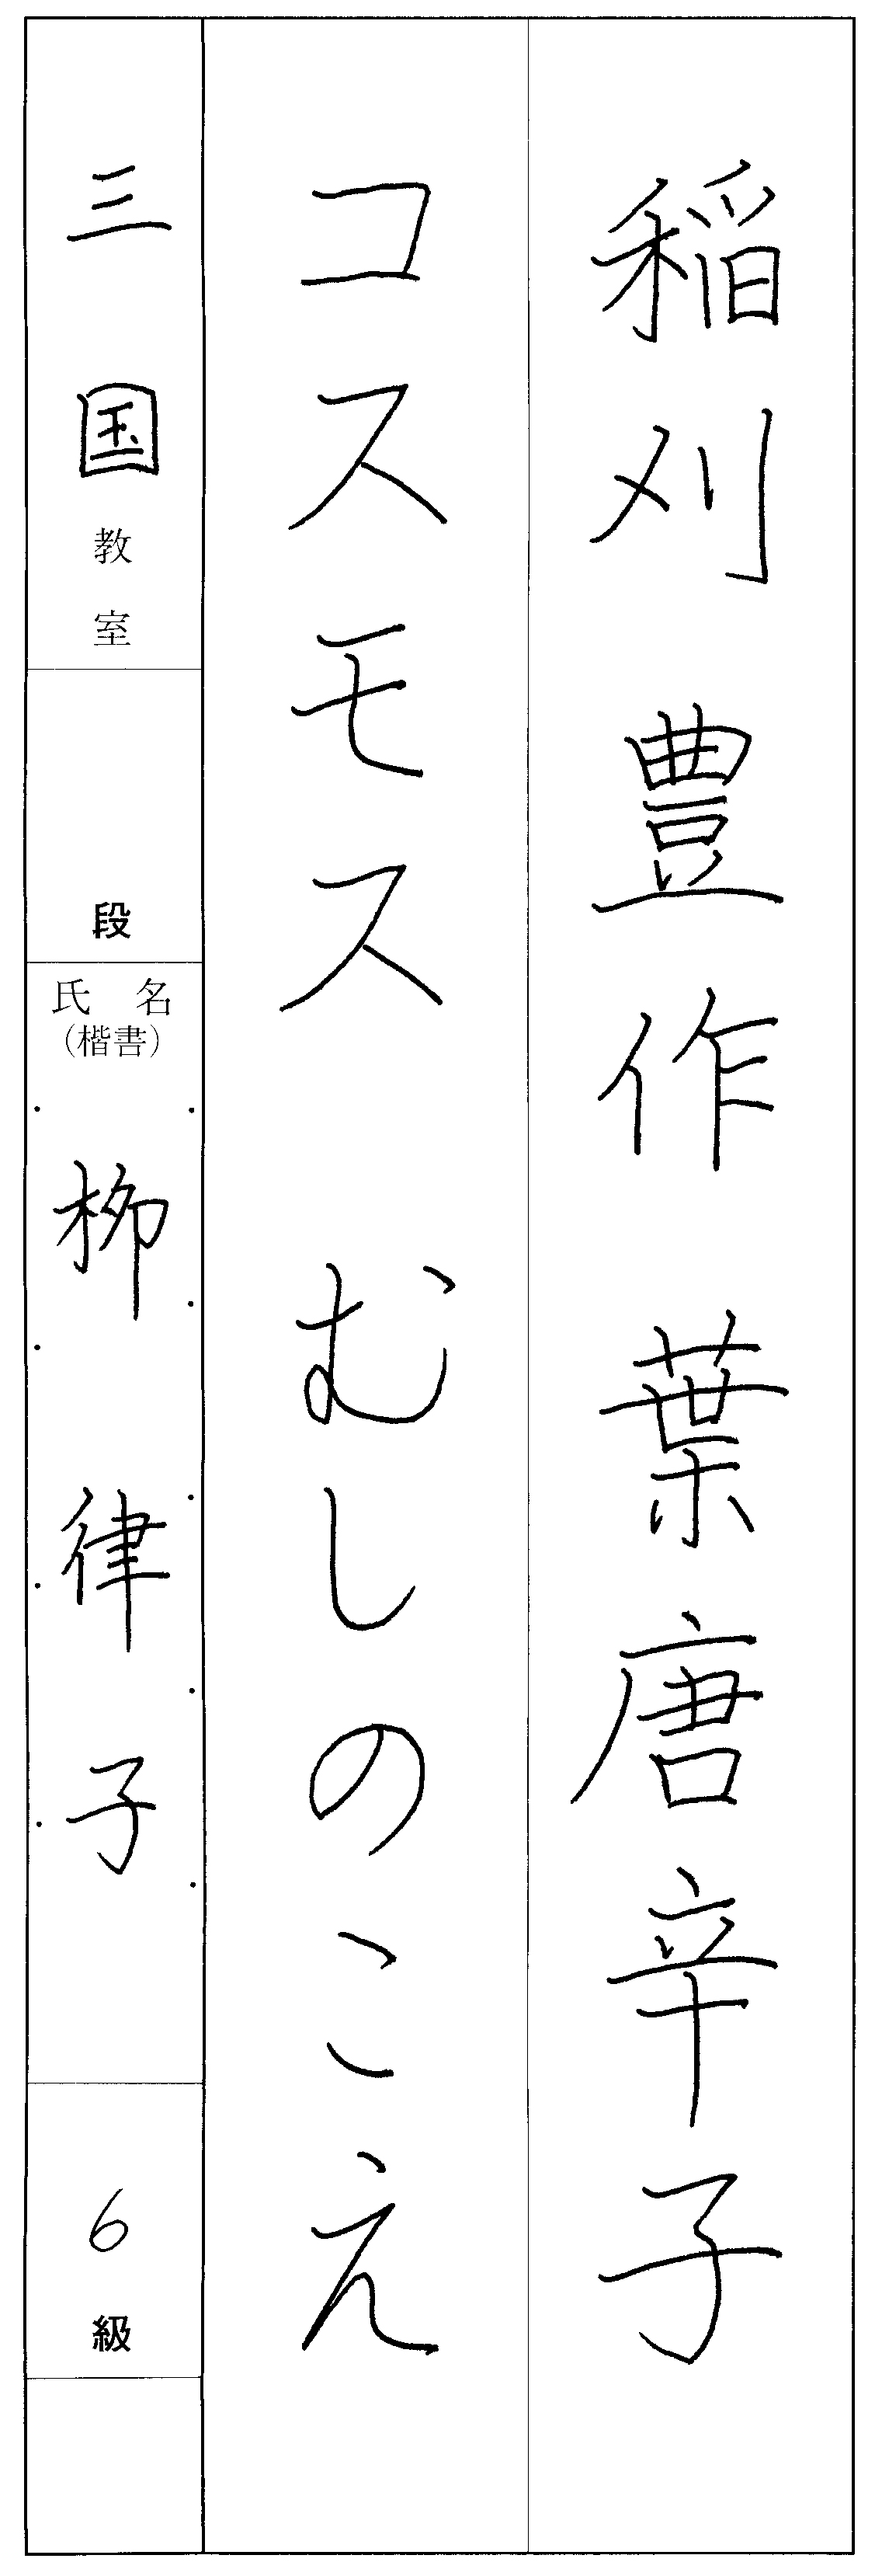 稲刈 豊作 葉唐辛子
コスモス むしのこえ
三国教室
段
氏名
(楷書)
柳 律子
6級